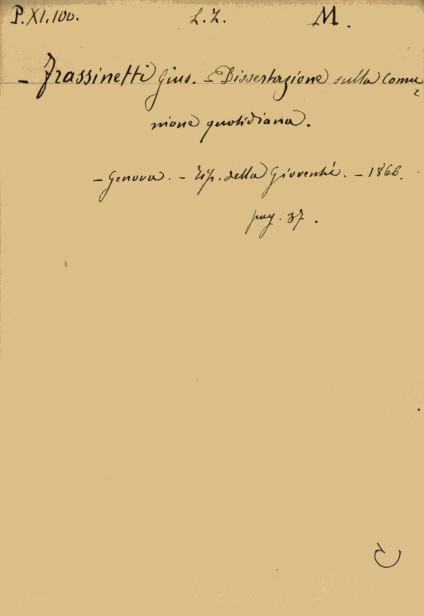 P.XI.100. L.Z. M.
- Frassinetti Gius. - Dissertazione sulla comu-
nione quotidiana.
- Genova. - Tip. della Gioventù. - 1866.
pag. 37.